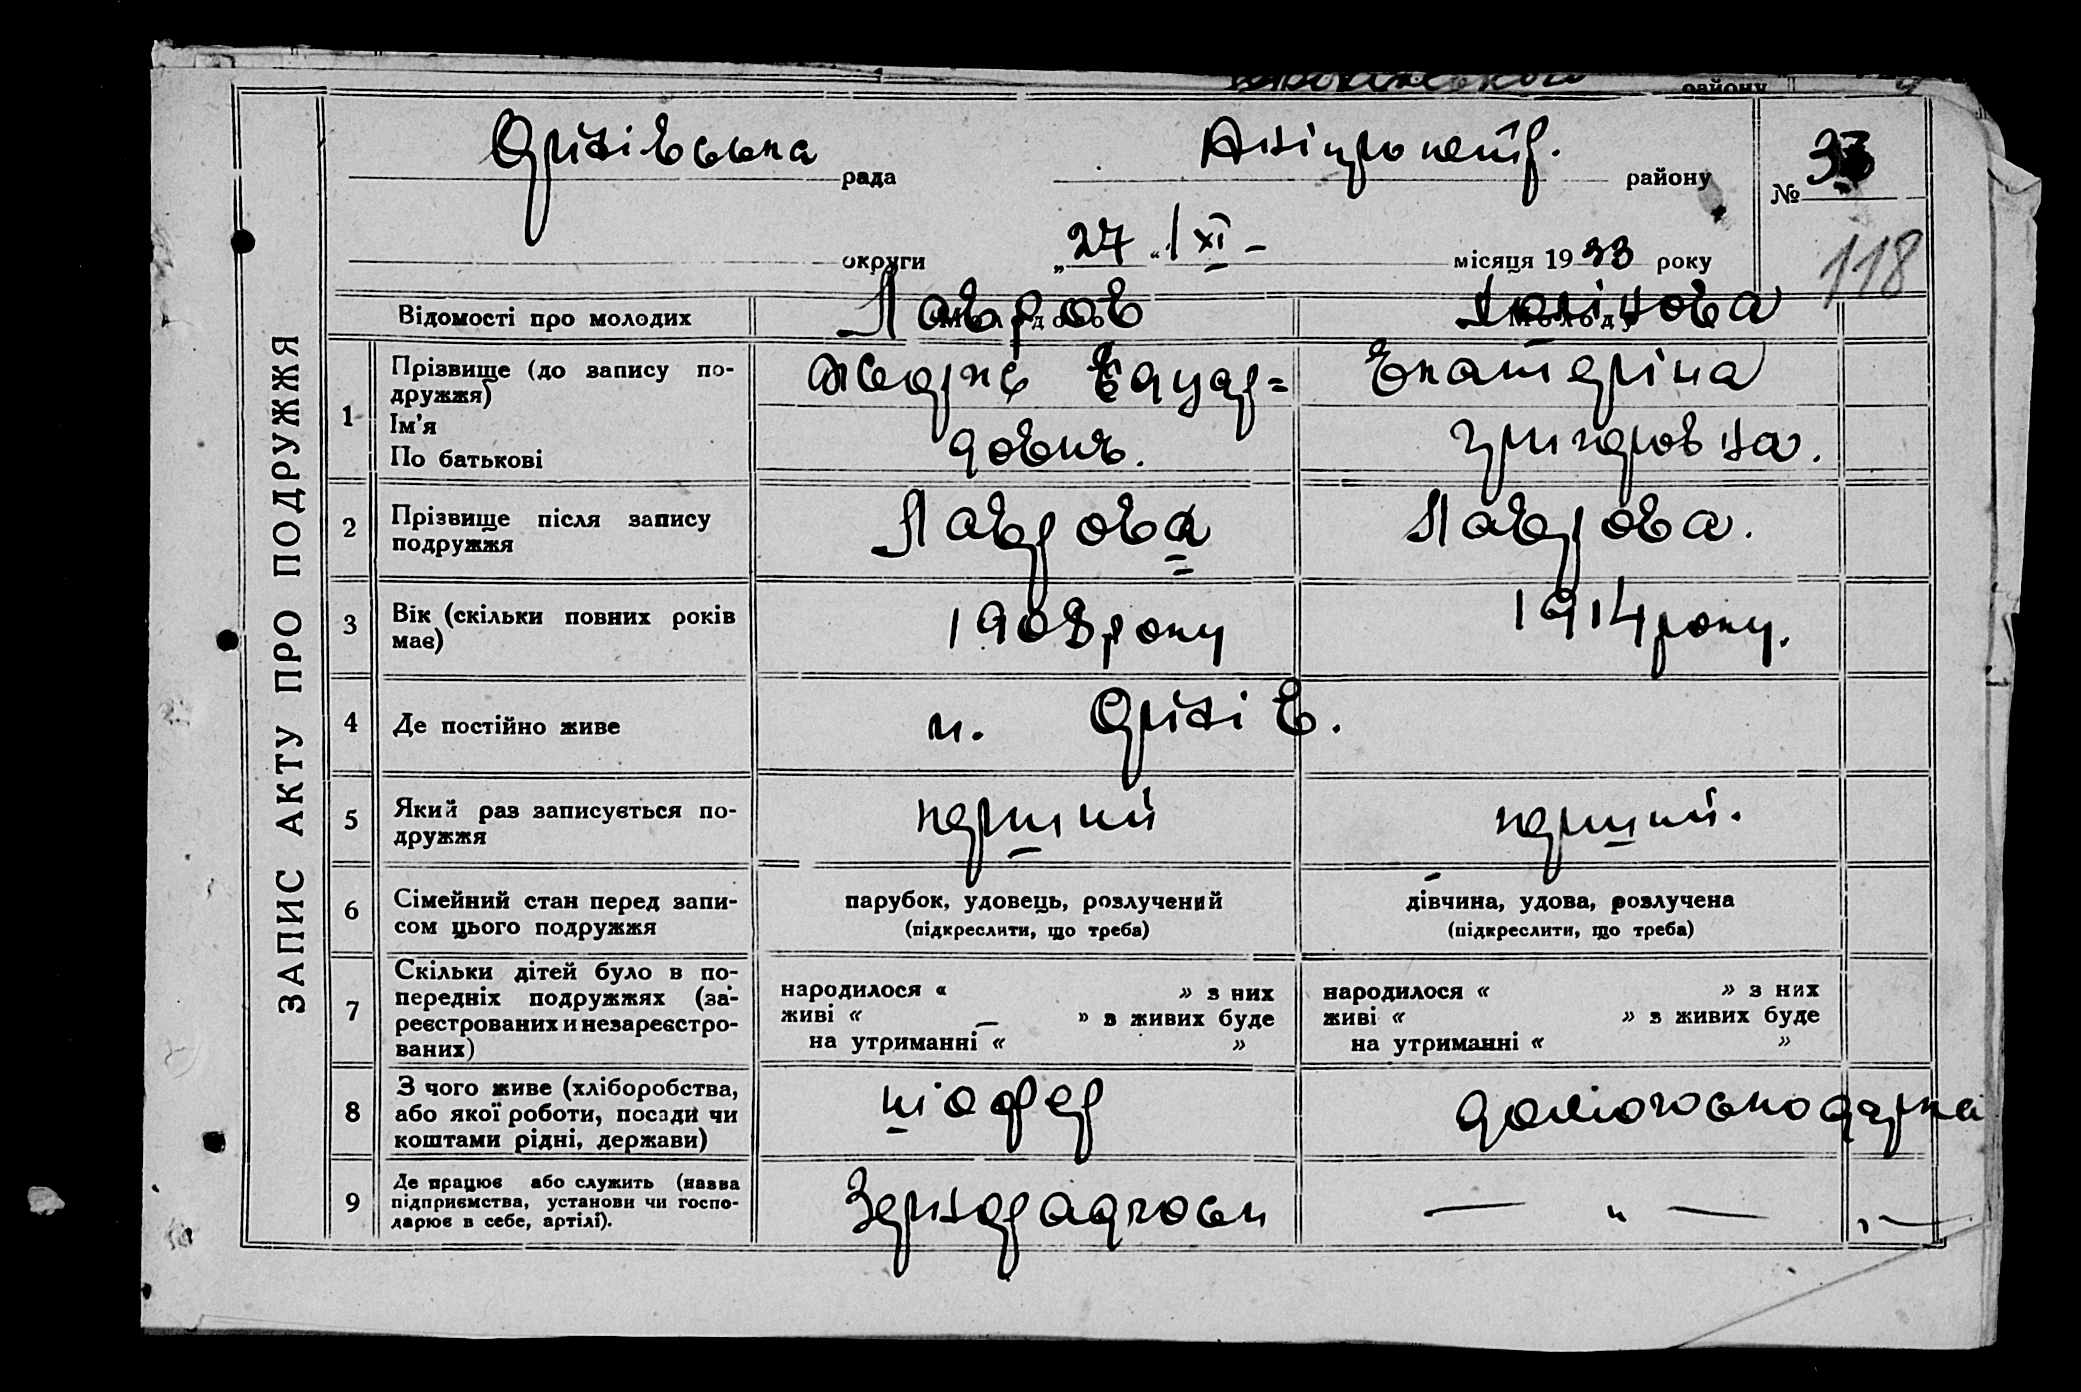 району
Орлівська рада
Дніпропетр. району
№ 33
округи
„27“ XI – місяця 1933 року
118
ЗАПИС АКТУ ПРО ПОДРУЖЖЯ
Відомості про молодих
Молодого
Молоду
1
Прізвище (до запису по-
дружжя)
Ім'я
По батькові
Лавров
Жеорже Едуар=
дович.
Екатеріна
Григоровна.
2
Прізвище після запису
подружжя
Лаврова
Лаврова.
3
Вік (скільки повних років
має)
1908 року
1914 року.
4
Де постійно живе
5
Який раз записується по-
дружжя
перший
перший.
6
Сімейний стан перед запи-
сом цього подружжя
парубок, удовець, розлучений
(підкреслити, що треба)
дівчина, удова, розлучена
(підкреслити, що треба)
7
Скільки дітей було в по-
передніх подружжях (за-
реєстрованих и незареєстро-
ваних)
народилося « » з них
живі « — » в живих буде
на утриманні « »
народилося « » з них
живі « » в живих буде
на утриманні « »
8
З чого живе (хліборобства,
або якої роботи, посади чи
коштами рідні, держави)
шофер
домогосподарка
9
Де працює або служить (назва
підприємства, установи чи госпо-
дарює в себе, артілі).
Зернорадгосп
— „ — „ —